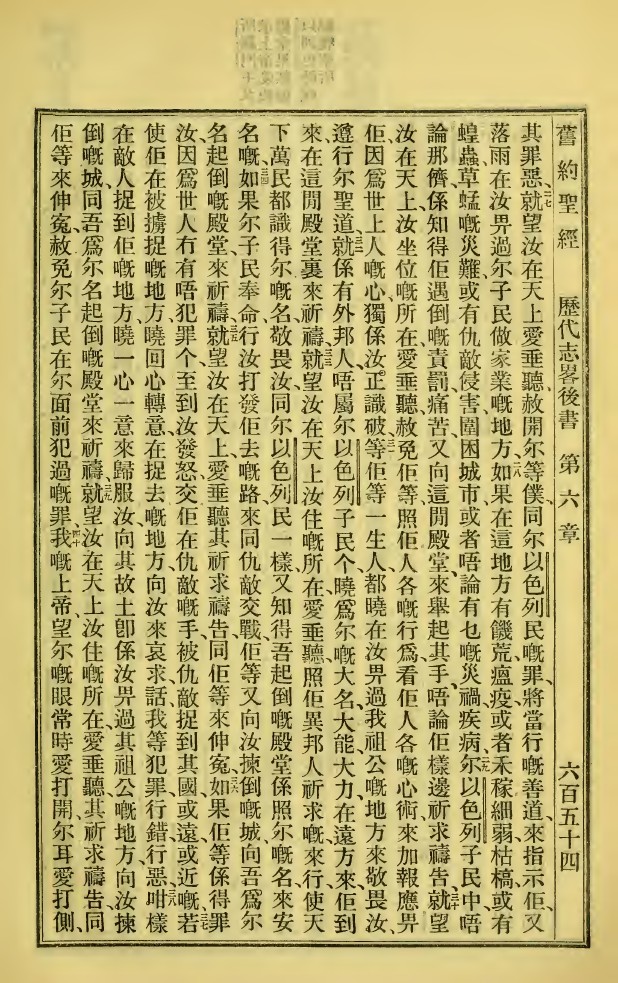 舊約聖經 歷代志畧後書 第六章 六百五十四
其罪惡、二七就望汝在天上愛垂聽、赦開尔等僕、同尔以色列民嘅罪、將當行嘅善道、來指示佢、又
落雨在汝畀過尔子民做家業嘅地方、二八如果在這地方有饑荒瘟疫、或者禾稼細弱枯槁、或有
蝗蟲草蜢嘅災難、或有仇敵侵害、圍困城市、或者唔論有乜嘅災禍疾病、二九尔以色列子民中、唔
論那儕、係知得佢遇倒嘅責罰痛苦、又向這閒殿堂來舉起其手、唔論佢樣邊祈求禱告、三十就望
汝在天上汝坐位嘅所在、愛垂聽赦免佢等、照佢人各嘅行爲、看佢人各嘅心術、來加報應畀
佢、因爲世上人嘅心、獨係汝正識破、三一等佢等一生人、都曉在汝畀過我祖公嘅地方、來敬畏汝、
遵行尔聖道、三二就係有外邦人、唔屬尔以色列子民个、曉爲尔嘅大名大能大力、在遠方來、佢到
來在這閒殿堂裏來祈禱、三三就望汝在天上汝住嘅所在、愛垂聽、照佢異邦人祈求嘅來行、使天
下萬民都識得尔嘅名、敬畏汝、同尔以色列民一樣、又知得吾起倒嘅殿堂、係照尔嘅名來安
名嘅、三四如果尔子民奉命、行汝打發佢去嘅路、來同仇敵交戰、佢等又向汝揀倒嘅城、向吾爲尔
名起倒嘅殿堂來祈禱、三五就望汝在天上、愛垂聽其祈求禱告、同佢等來伸寃、三六如果佢等係得罪
汝、因爲世人冇有唔犯罪个、至到汝發怒、交佢在仇敵嘅手、被仇敵捉到其國、或遠或近嘅、三七若
使佢在被擄捉嘅地方、曉回心轉意、在捉去嘅地方、向汝來哀求、話我等犯罪行錯行惡、三八咁樣
在敵人捉到佢嘅地方、曉一心一意來歸服汝、向其故土、卽係汝畀過其祖公嘅地方、向汝揀
倒嘅城、同吾爲尔名起倒嘅殿堂來祈禱、三九就望汝在天上汝住嘅所在、愛垂聽其祈求禱告、同
佢等來伸寃、赦免尔子民在尔面前犯過嘅罪、四十我嘅上帝、望尔嘅眼常時愛打開、尔耳愛打側、